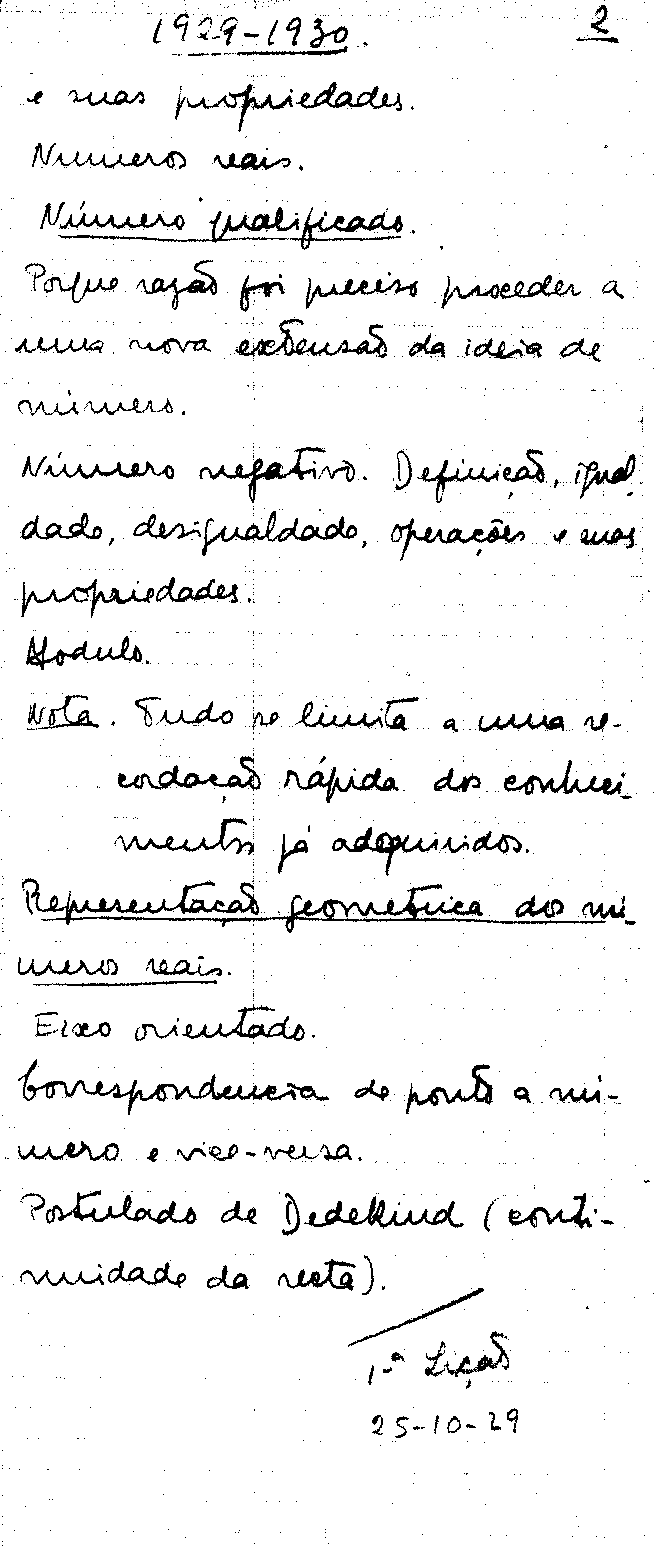 1929-1930. 2
e suas propriedades.
Numeros reais.
Número qualificado.
Porque razão foi preciso proceder a
uma nova extensão da ideia de
número.
Número negativo. Definição, igual
dade, desigualdade, operações e suas
propriedades.
Modulo.
Nota. Tudo se limita a uma re-
cordação rápida dos conheci-
mentos já adquiridos.
Representação geometrica dos nu-
meros reais.
Eixo orientado.
Correspondencia de ponto a nu-
mero e vice-versa.
Postulado de Dedekind (conti-
nuidade da recta).
1-ª Lição
25-10-29